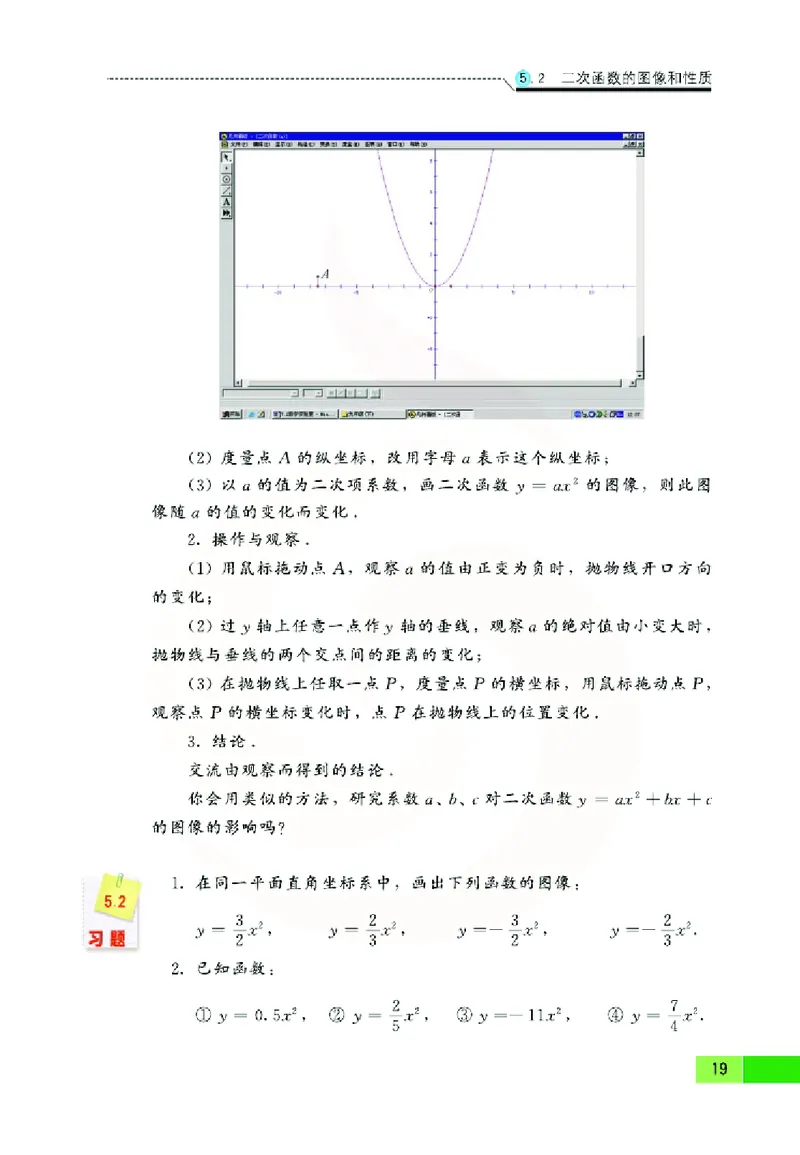 5.2 二次函数的图像和性质
A
(2) 度量点 A 的纵坐标，改用字母 a 表示这个纵坐标；
(3) 以 a 的值为二次项系数，画二次函数 y = ax² 的图像，则此图
像随 a 的值的变化而变化．
2. 操作与观察．
(1) 用鼠标拖动点 A，观察 a 的值由正变为负时，抛物线开口方向
的变化；
(2) 过 y 轴上任意一点作 y 轴的垂线，观察 a 的绝对值由小变大时，
抛物线与垂线的两个交点间的距离的变化；
(3) 在抛物线上任取一点 P，度量点 P 的横坐标，用鼠标拖动点 P，
观察点 P 的横坐标变化时，点 P 在抛物线上的位置变化．
3. 结论．
交流由观察而得到的结论．
你会用类似的方法，研究系数 a、b、c 对二次函数 y = ax² + bx + c
的图像的影响吗？
5.2
习题
1. 在同一平面直角坐标系中，画出下列函数的图像：
y = 3/2 x²， y = 2/3 x²， y = - 3/2 x²， y = - 2/3 x².
2. 已知函数：
① y = 0.5x²， ② y = 2/5 x²， ③ y = - 11x²， ④ y = 7/4 x².
19